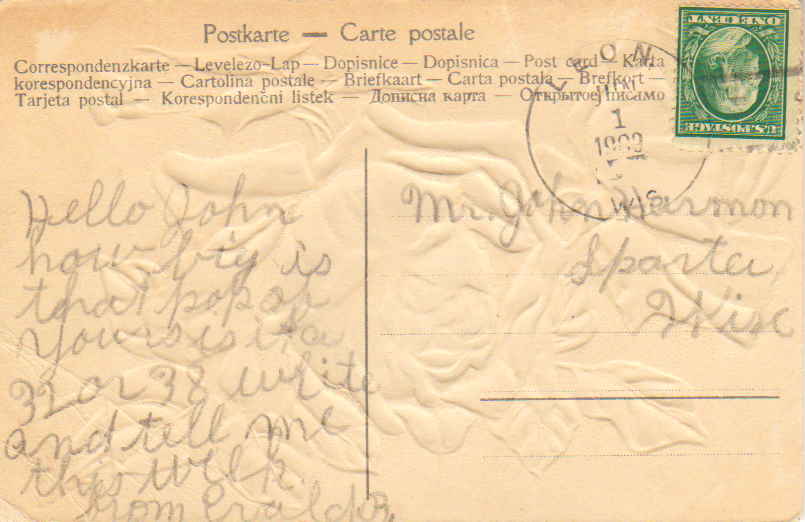 Postkarte — Carte postale
Correspondenzkarte — Levelezo-Lap — Dopisnice — Dopisnica — Post card — Karta
korespondencyjna — Cartolina postale — Briefkaart — Carta postala — Brefkort —
Tarjeta postal — Korespondenční listek — Дописна карта — Открытое письмо
LEON
JUN
1
1909
WIS
U.S. POSTAGE
ONE CENT
Hello John
how big is
that pop of
yours is it a
32 or 38 write
and tell me
this week
from
Mr. John Harmon
Sparta
Wise